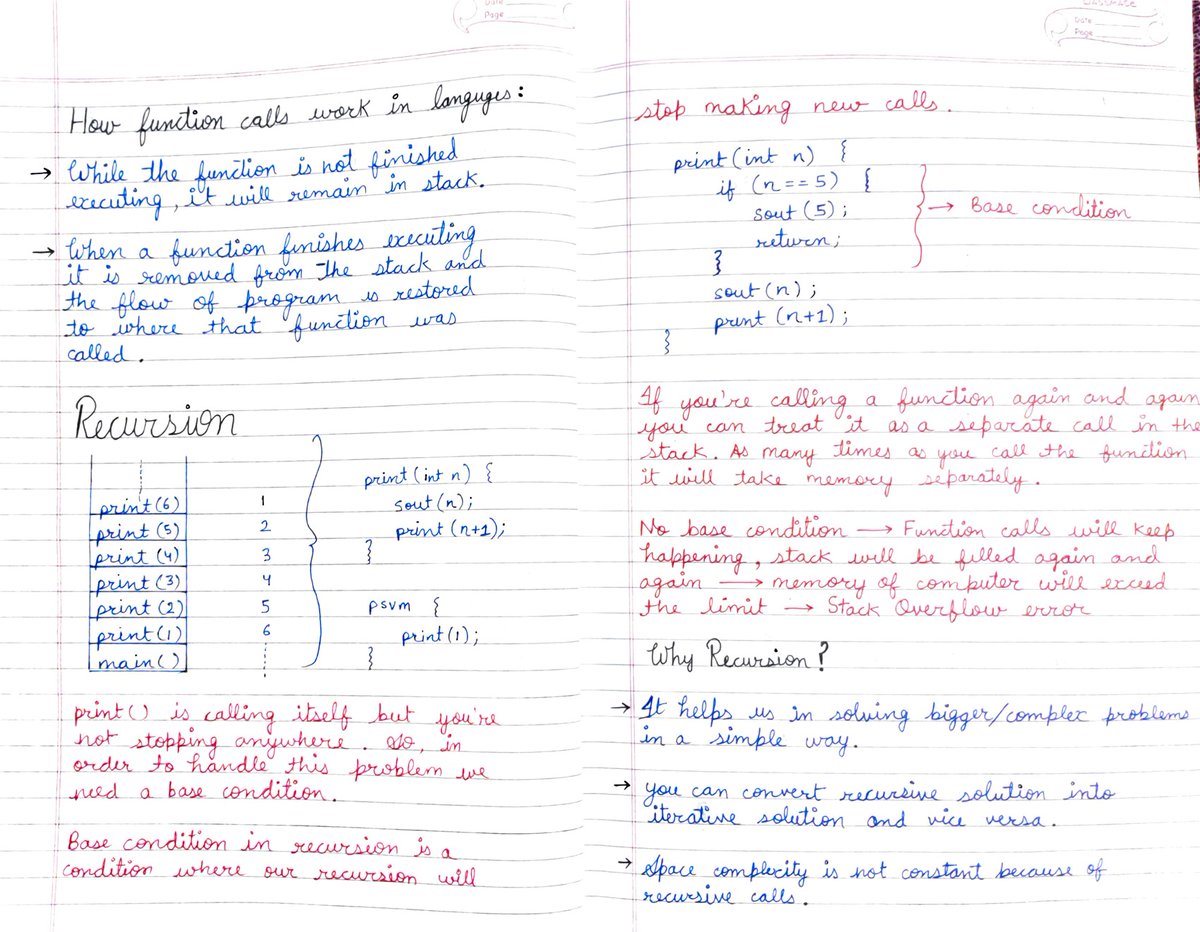 Date
Page
How function calls work in languges:
→ While the function is not finished
executing, it will remain in stack.
→ When a function finishes executing
it is removed from the stack and
the flow of program is restored
to where that function was
called.
Recursion
print(6) 1
print(5) 2
print(4) 3
print(3) 4
print(2) 5
print(1) 6
main()
print(int n) {
sout(n);
print(n+1);
}
psvm {
print(1);
}
print() is calling itself but you're
not stopping anywhere. So, in
order to handle this problem we
need a base condition.
Base condition in recursion is a
condition where our recursion will
CLASSMATE
Date
Page
stop making new calls.
print(int n) {
if (n==5) {
sout(5);
return;
}
→ Base condition
sout(n);
print(n+1);
}
If you're calling a function again and again
you can treat it as a separate call in the
stack. As many times as you call the function
it will take memory separately.
No base condition → Function calls will keep
happening, stack will be filled again and
again → memory of computer will exceed
the limit → Stack Overflow error
Why Recursion?
→ It helps us in solving bigger/complex problems
in a simple way.
→ you can convert recursive solution into
iterative solution and vice versa.
→ Space complexity is not constant because of
recursive calls.